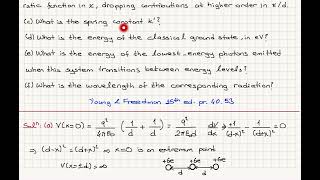 ratic function in x, dropping contributions at higher order in x/d.
(c) What is the spring constant k'?
(d) What is the energy of the classical ground state, in eV?
(e) What is the energy of the lowest-energy photons emitted
when this system transitions between energy levels?
(f) What is the wavelength of the corresponding radiation?
Young & Freedman 15th ed. pr. 40.53
Soln: (a) V(x=0) = q²/4πε₀ (1/d + 1/d) = q²/2πε₀d dV/dx ⇒ 1/(d-x)² - 1/(d+x)² = 0
⇒ (d-x)² = (d+x)² ⇒ x=0 is an extremum point
V(x=±d) = ∞ +6e +6e +6e
d d